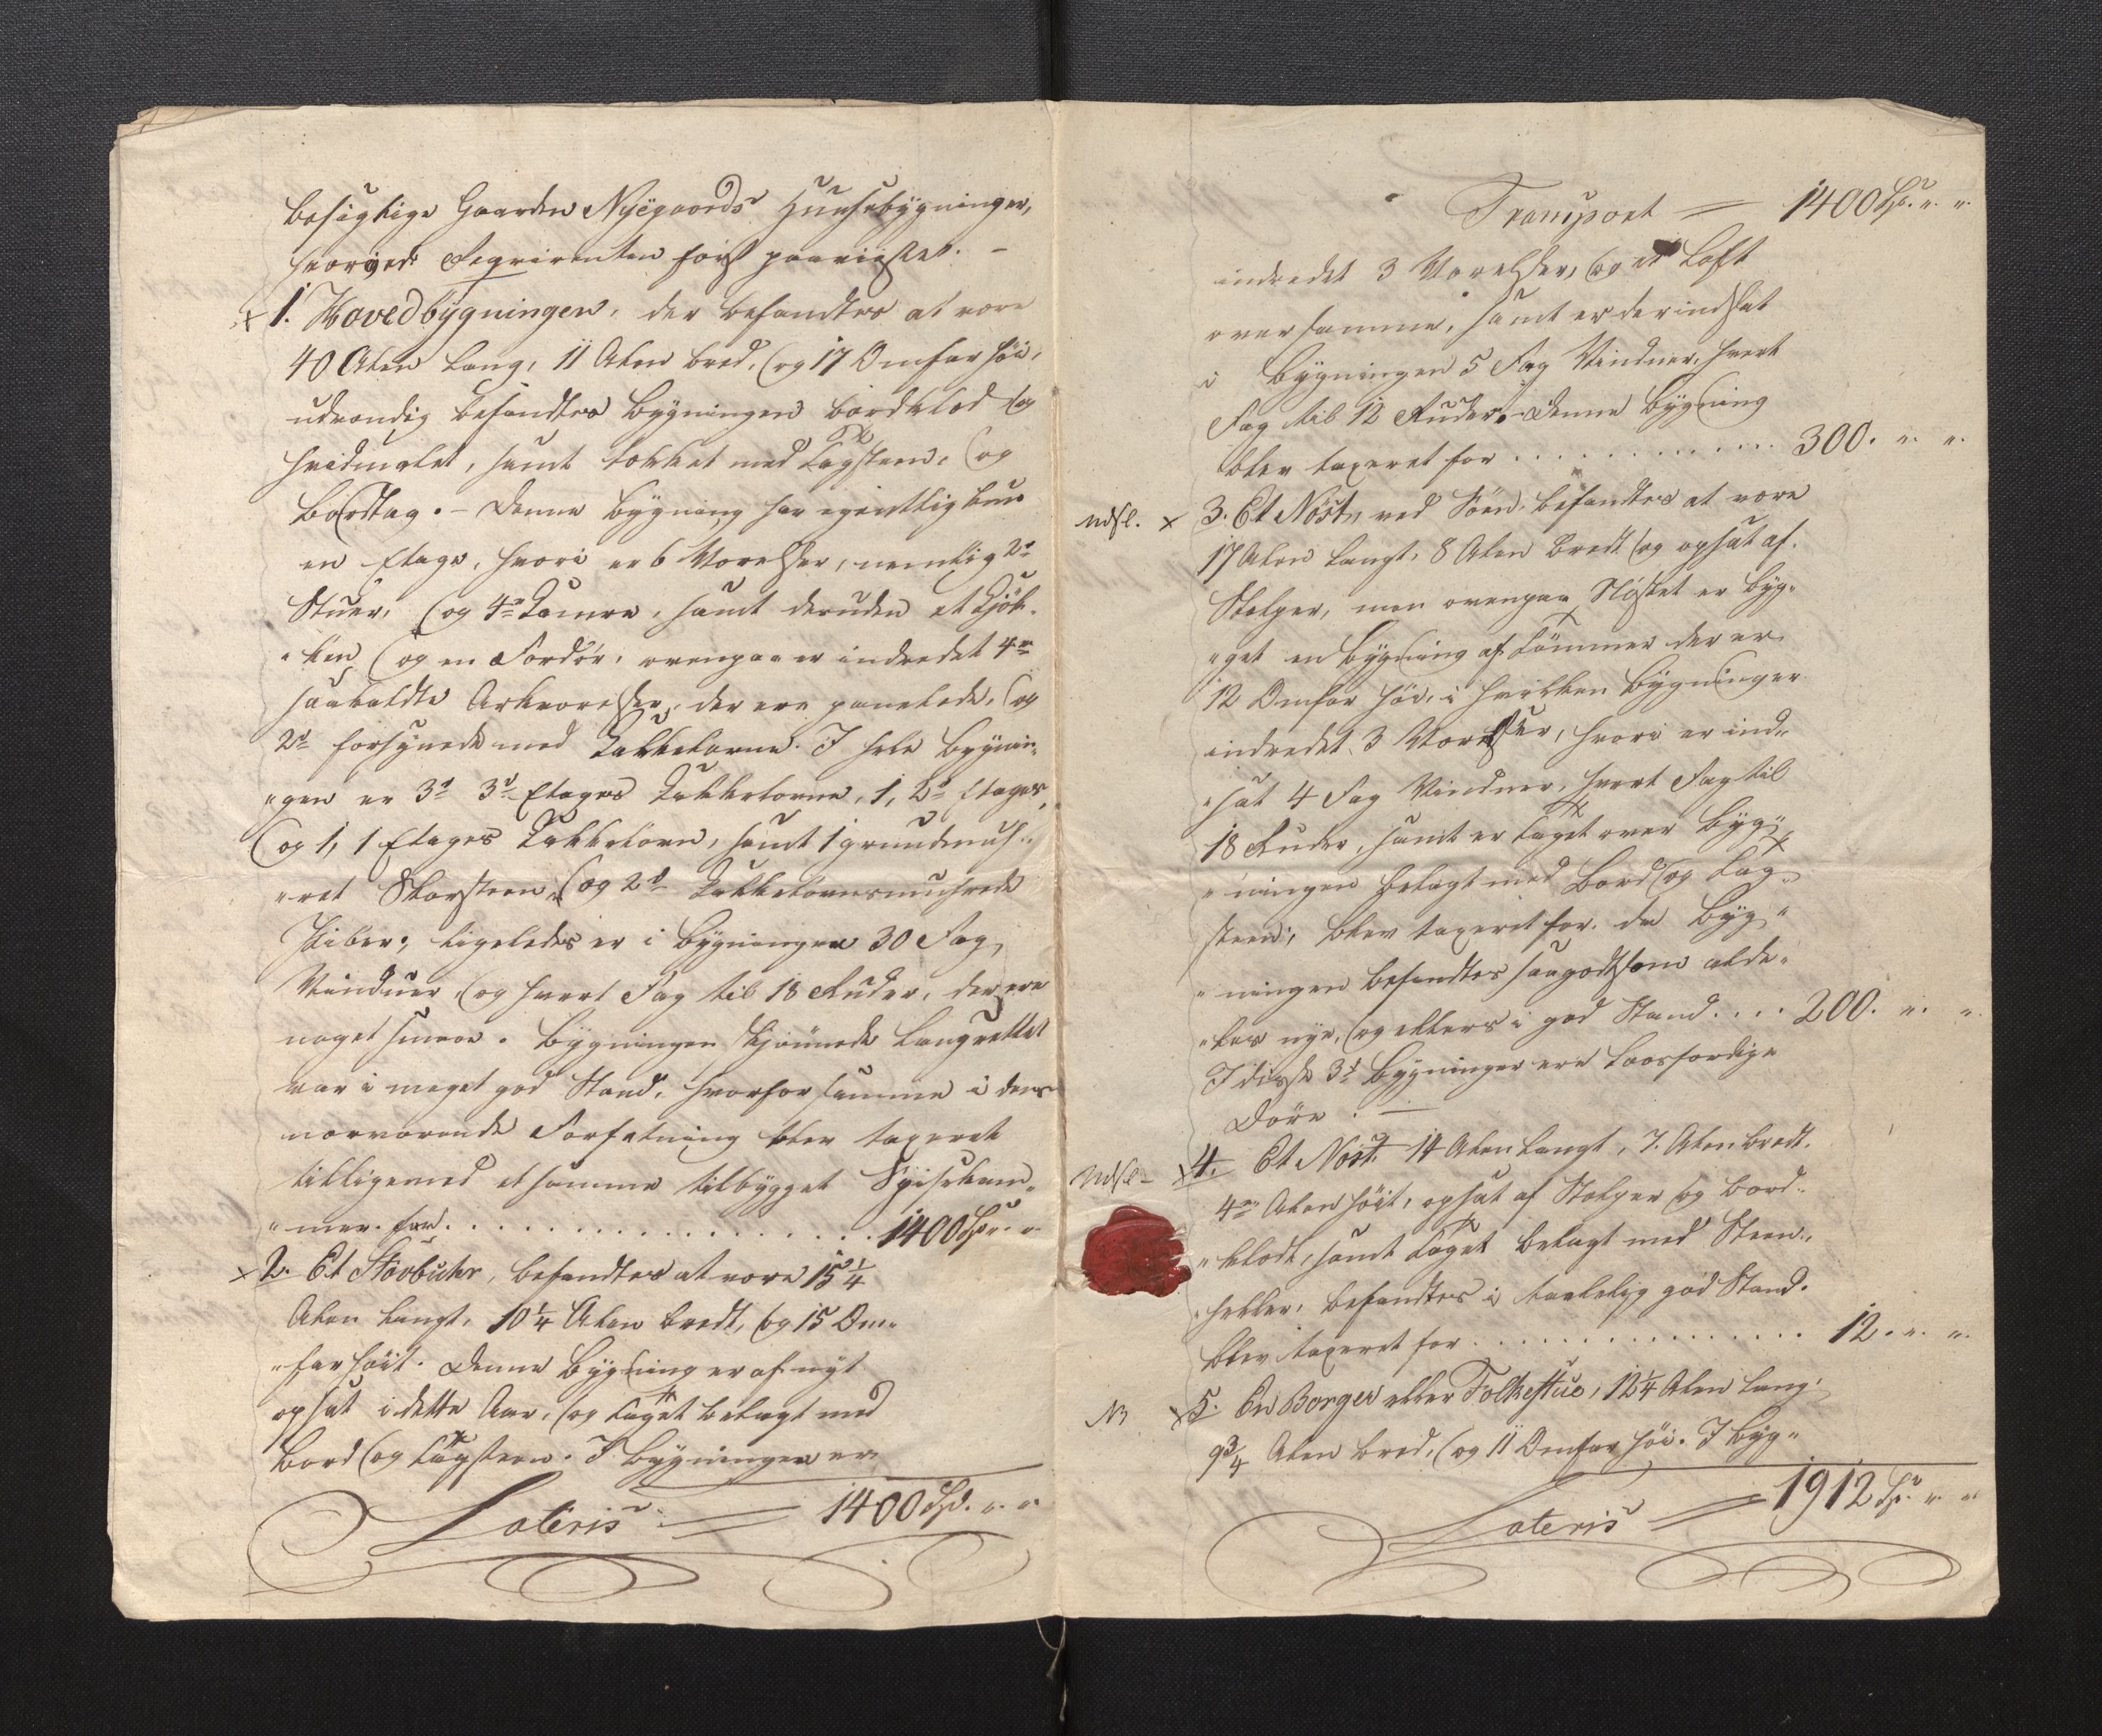 besigtige Gaarden Nyegaards Huusebygninger,
hvorved Reqvirenten först paaviiste. –
x 1. Hovedbygningen, der befandtes at være
40 Alen lang, 11 Alen bred, og 17 Omfar höi,
udvendig befandtes Bygningen bordklæd og
hvidmalet, samt tækket med Tagsteen, og
Bordtag. – Denne Bygning har egentlig kun
en Etage, hvori er 6 Værelser, nemlig 2de
Stuer, og 4re Kamre, samt desuden et Kjök-
"ken og en Fordör, ovenpaa er indredet 4re
saakaldte Arkværelser, der ere panelede, og
2de forsynede med Kakkelovne. I hele Bygnin-
"gen er 3de 3de Etages Kakkelovne, 1, 2de Etages,
og 1, 1 Etages Kakkelovn, samt 1 grundmuh-
"ret Skorsteen, og 2de Kakkelovnsmuhrede
Piber; ligeledes er i Bygningen 30 Fag
Vinduer og hvert Fag til 18 Ruder, der ere
noget smaae. Bygningen skjönnede Laugrettet
var i meget god Stand, hvorfor samme i dens
nærværende Forfatning blev taxeret
tilligemed et samme tilbygget Spisekam-
"mer for . . . . . . 1400 Spd. " "
x 2. Et Stovbuhr, befandtes at være 15 1/4
Alen langt, 10 1/4 Alen bredt, og 15 Om-
"far höit. Denne Bygning er af nyt
opsat i dette Aar, og Taget belagt med
Bord og Tagsteen. I Bygningen er
Lateris = 1400 Spd. " "
Transport = 1400 Spd. " "
indredet 3 Værelser, og et Loft
over samme, samt er der indsat
i Bygningen 5 Fag Vinduer, hvert
Fag til 12 Ruder. – Denne Bygning
blev taxeret for . . . . . . 300. " "
udsl. x 3. Et Nöst, ved Söen, befandtes at være
17 Alen langt, 8 Alen bredt og opsat af
Stolper, men ovenpaa Nöstet er byg-
"get en Bygning af Tömmer der er
12 Omfar höi, i hvilken Bygninger
indredet 3 Værelser, hvori er ind-
"sat 4 Fag Vinduer, hvert Fag til
18 Ruder, samt er Taget over Byg-
"ningen belagt med Bord og Tag-
steen, blev taxeret for, da Byg-
"ningen befandtes saagodtsom alde-
"les nye, og ellers i god Stand . . . . 200. " "
I disse 3de Bygninger ere laasfærdige
Döre. –
Udsl – x 4. Et Nöst 14 Alen langt, 7. Alen bredt,
4re Alen höit, opsat af Stolper og bord-
"klædt, samt Taget belagt med Steen-
"heller, befandtes i taalelig god Stand.
blev taxeret for . . . . . . 12. " "
x 5. En Borger eller Folkestue, 12 1/4 Alen lang,
9 3/4 Alen bred, og 11 Omfar höi. I Byg-
Lateris = 1912 Spd. " "